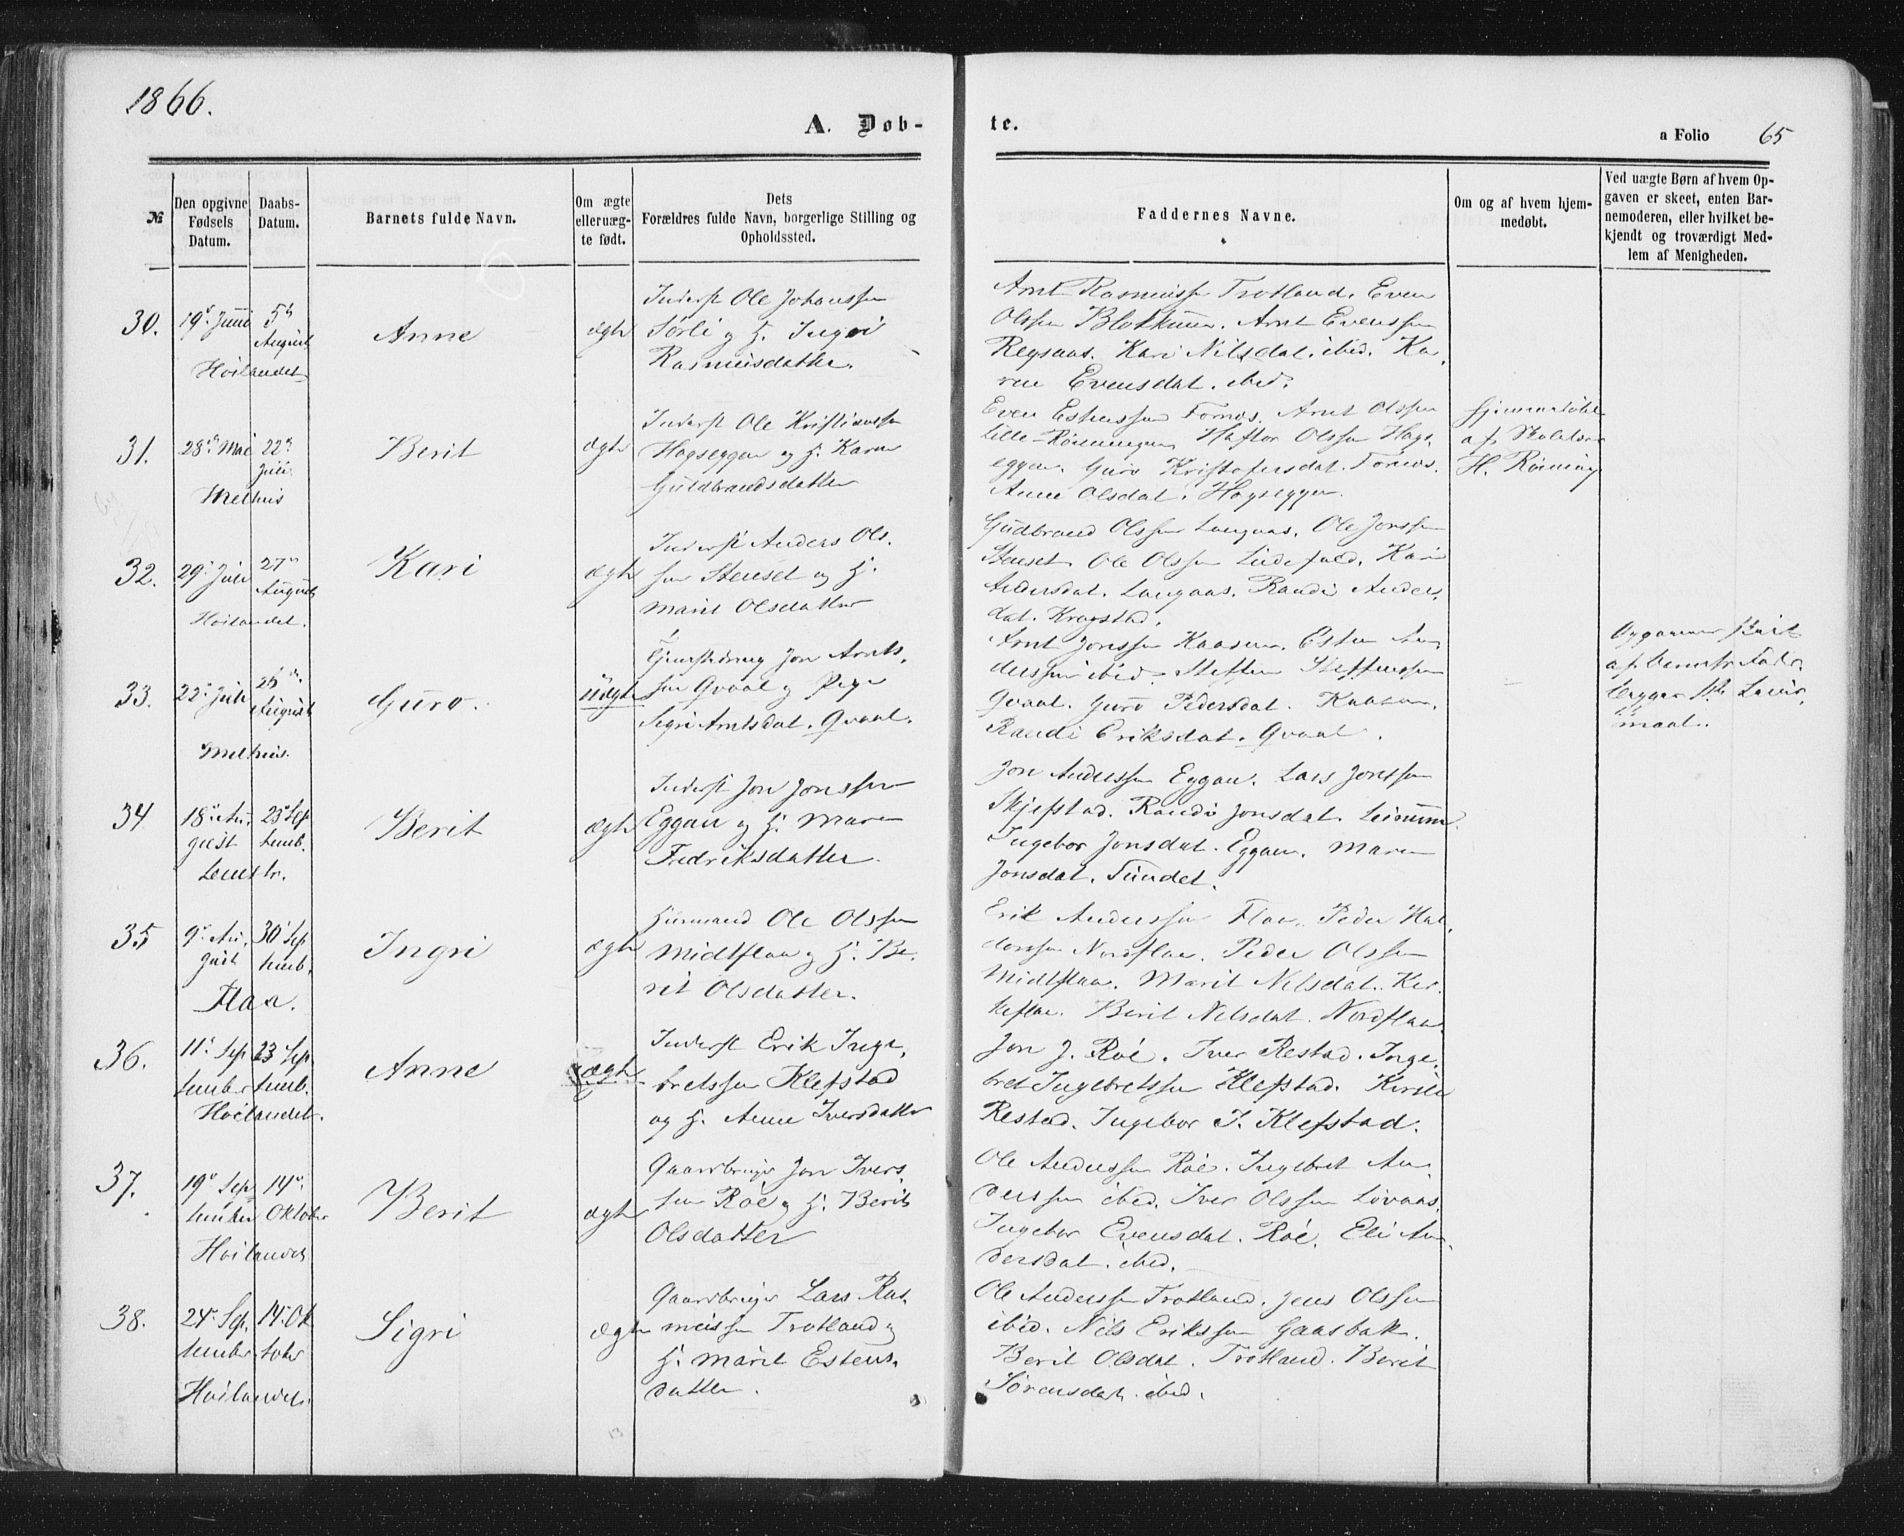 1866.
A. Døb-
te.
a Folio 65
№
Den opgivne
Fødsels
Datum.
Daabs-
Datum.
Barnets fulde Navn.
Om ægte
elleruæg-
te født.
Dets
Forældres fulde Navn, borgerlige Stilling og
Opholdssted.
Faddernes Navne.
Om og af hvem hjem-
medøbt.
Ved uægte Børn af hvem Op-
gaven er skeet, enten Bar-
nemoderen, eller hvilket be-
kjendt og troværdigt Med-
lem af Menigheden.
30.
19de Juni
Høilandet
5te
August
Anne
ægte
Inderst Ole Johanssen
Sørli og H. Ingri
Rasmusdatter.
Arnt Rasmussen Trotland. Even
Olssen Blokkum. Arnt Evenssen
Regsaas. Kari Nilsdat. ibid. Ka-
ren Evensdat. ibid.
31.
28de Mai
Melhus
22de
Juli
Berit
ægte
Inderst Ole Kristianssen
Hagseggen og H. Karen
Guldbrandsdatter
Even Estenssen Fornes. Arnt Olssen
Lille-Rønningen Haftor Olssen Hags-
eggen. Guro Kristofersdat. Fornes.
Anne Olsdat. Hagseggen.
Hjemmedøbt
af Skolelærer
H. Rønning
32.
29de Juli
Høilandet.
27de
August
Kari
ægte
Inderst Anders Ols-
sen Stenset og H.
Marit Olsdatter
Gudbrand Olssen Langaas. Ole Jonssen
Stenset. Ole Olssen Lidefald. Kari
Andersdat. Langaas. Randi Anders-
dat. Kregstad.
33.
22de Juli
Melhus.
26de
August
Guro.
uægte
Tjenestedreng Jon Arnts-
sen Qvaal og Pige
Sigri Arntsdat. Qvaal.
Arnt Jonssen Kaasen. Esten An-
derssen ibid. Steffen Steffenssen
Qvaal. Guro Pedersdat. Kaasen.
Randi Eriksdat. Qvaal.
Opgaven skeet
af Barnets Fader
Begges 1ste Leier-
maal.
34
18de Au-
gust
Lenstr.
23de Sep-
temb.
Berit
ægte
Inderst Jon Jonssen
Eggan og H. Maren
Fredriksdatter.
Jon Anderssen Eggan. Lars Jonssen
Skjefstad. Randi Jonsdat. Leinum.
Ingebor Jonsdat. Eggan. Maren
Jonsdat. Sundet.
35
9de Au-
gust
Flaa.
30te Sep
temb.
Ingri
ægte
Husmand Ole Olssen
Midtflaa og H. Be-
rit Olsdatter.
Erik Anderssen Flaa. Peder Hal-
dorssen Nordflaa. Peder Olssen
Midtflaa. Marit Nilsdat. Kir-
keflaa. Berit Nilsdat. Nordflaa.
36.
11te Sep
tember
Høilandet.
23 Sep
temb.
Anne
ægte
Inderst Erik Inge-
bretssen Klefstad
og H. Anne Iversdatter
Jon J. Røe. Iver Restad. Inge-
bret Ingebretssen Klefstad. Kirsti
Restad. Ingebor I. Klefstad.
37.
19de Sep
tember
Høilandet
14de
Oktober
Berit
ægte
Gaardbruger Jon Ivers-
sen Røe og H. Berit
Olsdatter
Ole Anderssen Røe. Ingebret An-
derssen ibid. Iver Olssen Løvaas.
Ingebor Evensdat. Røe. Eli An-
dersdat. ibid.
38.
24de Sep-
tember
Høilandet.
14de Ok
tober
Sigri
ægte
Gaardbruger Lars Ras-
mussen Trotland og
H. Marit Estens-
datter.
Ole Anderssen Trotland. Jens Olssen
ibid. Nils Erikssen Gaasbak.
Berit Olsdat. Trotland. Berit
Sørensdat. ibid.